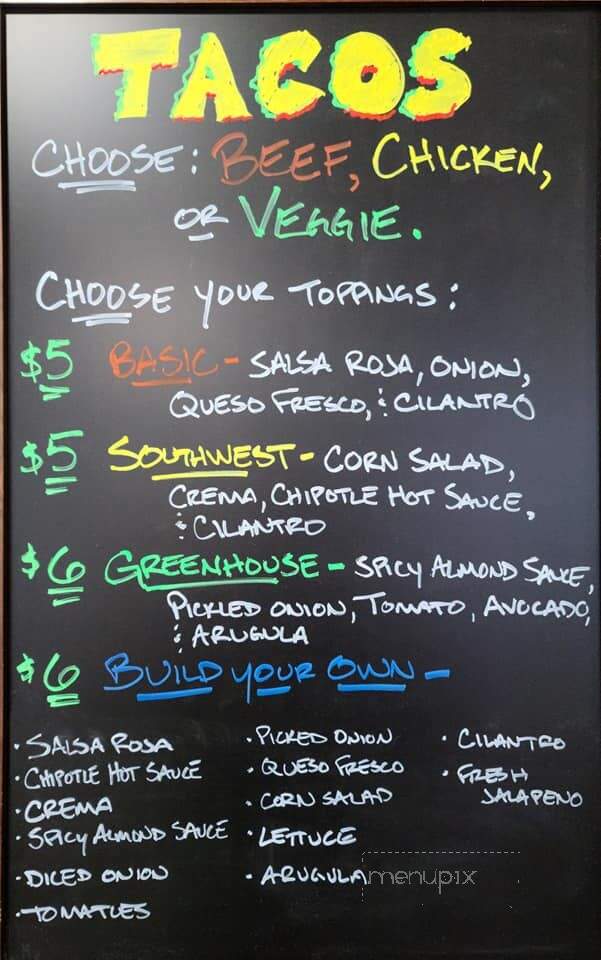 TACOS
CHOOSE: BEEF, CHICKEN,
OR VEGGIE.
CHOOSE YOUR TOPPINGS:
$5 BASIC - SALSA ROJA, ONION,
QUESO FRESCO, & CILANTRO
$5 SOUTHWEST - CORN SALAD,
CREMA, CHIPOTLE HOT SAUCE,
& CILANTRO
$6 GREENHOUSE - SPICY ALMOND SAUCE,
PICKLED ONION, TOMATO, AVOCADO,
& ARUGULA
$6 BUILD YOUR OWN -
• SALSA ROJA
• CHIPOTLE HOT SAUCE
• CREMA
• SPICY ALMOND SAUCE
• DICED ONION
• TOMATLES
• PICKED ONION
• QUESO FRESCO
• CORN SALAD
• LETTUCE
• ARUGULA
• CILANTRO
• FRESH
JALAPENO
menupix